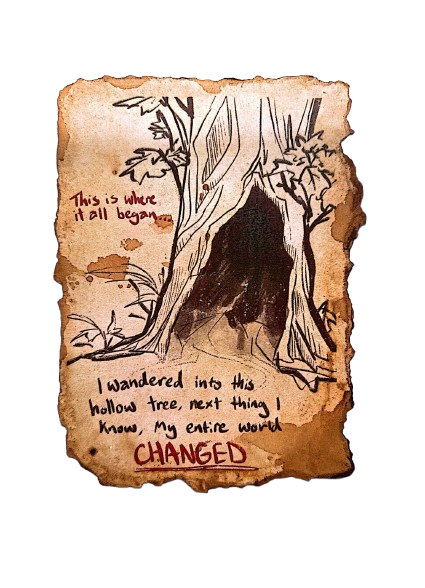 This is where
it all began...
I wandered into this
hollow tree, next thing I
know, My entire world
CHANGED